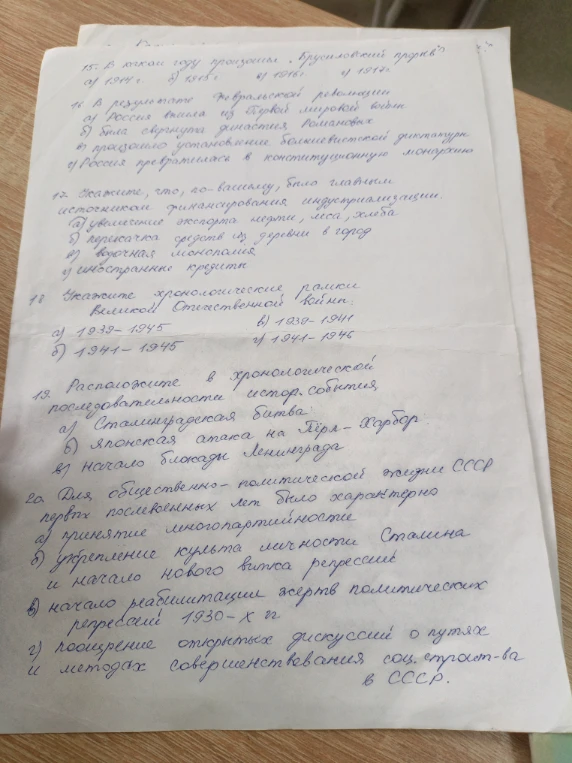 15. В каком году произошёл „Брусиловский прорыв"?
а) 1914 г. б) 1915 г. в) 1916 г. г) 1917 г.
16. В результате Февральской революции
а) Россия вышла из Первой мировой войны
б) была свергнута династия Романовых
в) произошло установление большевистской диктатуры
г) Россия превратилась в конституционную монархию
17. Укажите, что, по-вашему, было главным
источником финансирования индустриализации.
а) увеличение экспорта нефти, леса, хлеба
б) перекачка средств из деревни в город
в) водочная монополия
г) иностранные кредиты
18 Укажите хронологические рамки
Великой Отечественной войны:
а) 1939-1945 в) 1939-1941
б) 1941-1945 г) 1941-1946
19. Расположите в хронологической
последовательности истор. события
а) Сталинградская битва
б) японская атака на Пёрл-Харбор
в) начало блокады Ленинграда
20 Для общественно-политической жизни СССР
первых послевоенных лет было характерно
а) принятие многопартийности
б) укрепление культа личности Сталина
и начало нового витка репрессий
в) начало реабилитации жертв политических
репрессий 1930-х гг
г) поощрение открытых дискуссий о путях
и методах совершенствования соц. строит-ва
в СССР.